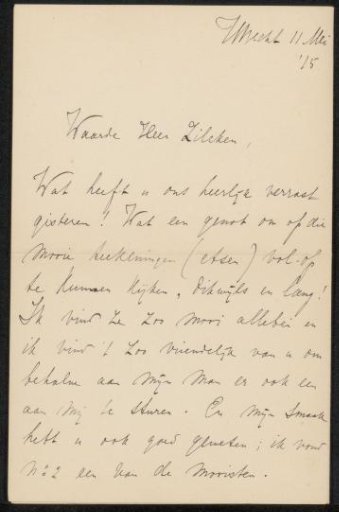 Utrecht 11 Mei
'15
Waarde Heer Zilcken,
Wat heeft u ons heerlijk verrast
gisteren! Wat een genot om op die
mooie teekeningen (etsen) vol-op
te kunnen kijken, dikwijls en lang!
Ik vind ze zoo mooi allebei en
ik vind 't zoo vriendelijk van u om
behalve aan mijn man er ook een
aan mij te sturen. En mijn smaak
hebt u ook goed geweten; ik vond
No 2 een van de mooisten.